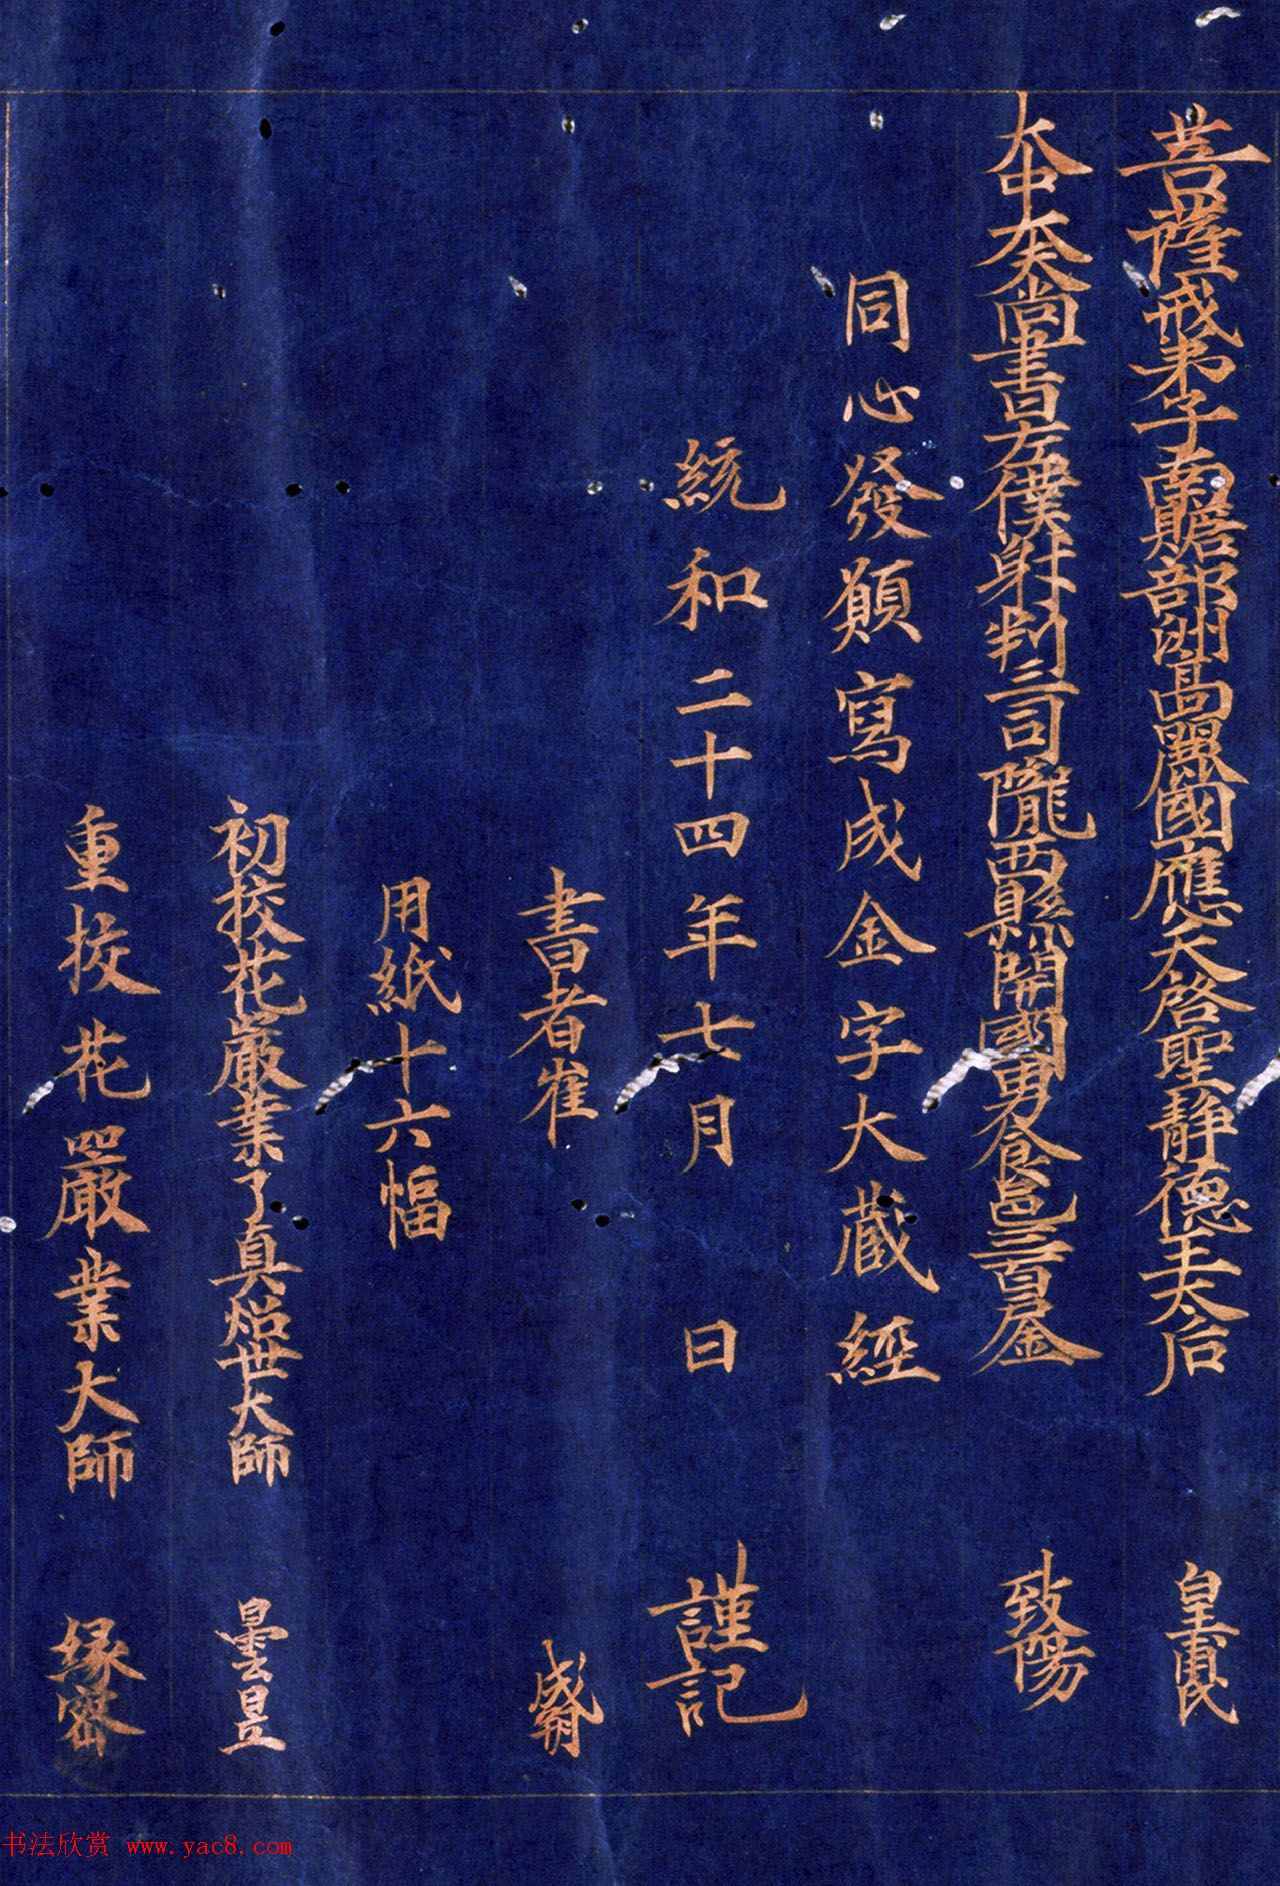 菩薩戒弟子南贍部洲高麗國應天啓聖静德王太后 皇甫氏
大中大夫尚書左僕射判三司隴西縣開國男食邑三百金 致陽
同心發願寫成金字大蔵經
統和二十四年七月 日 謹記
書者崔
用紙十六幅
初挍花嚴業了真炤世大師 曇昱
重挍花嚴業大師 緣密
书法欣赏 www.yac8.com